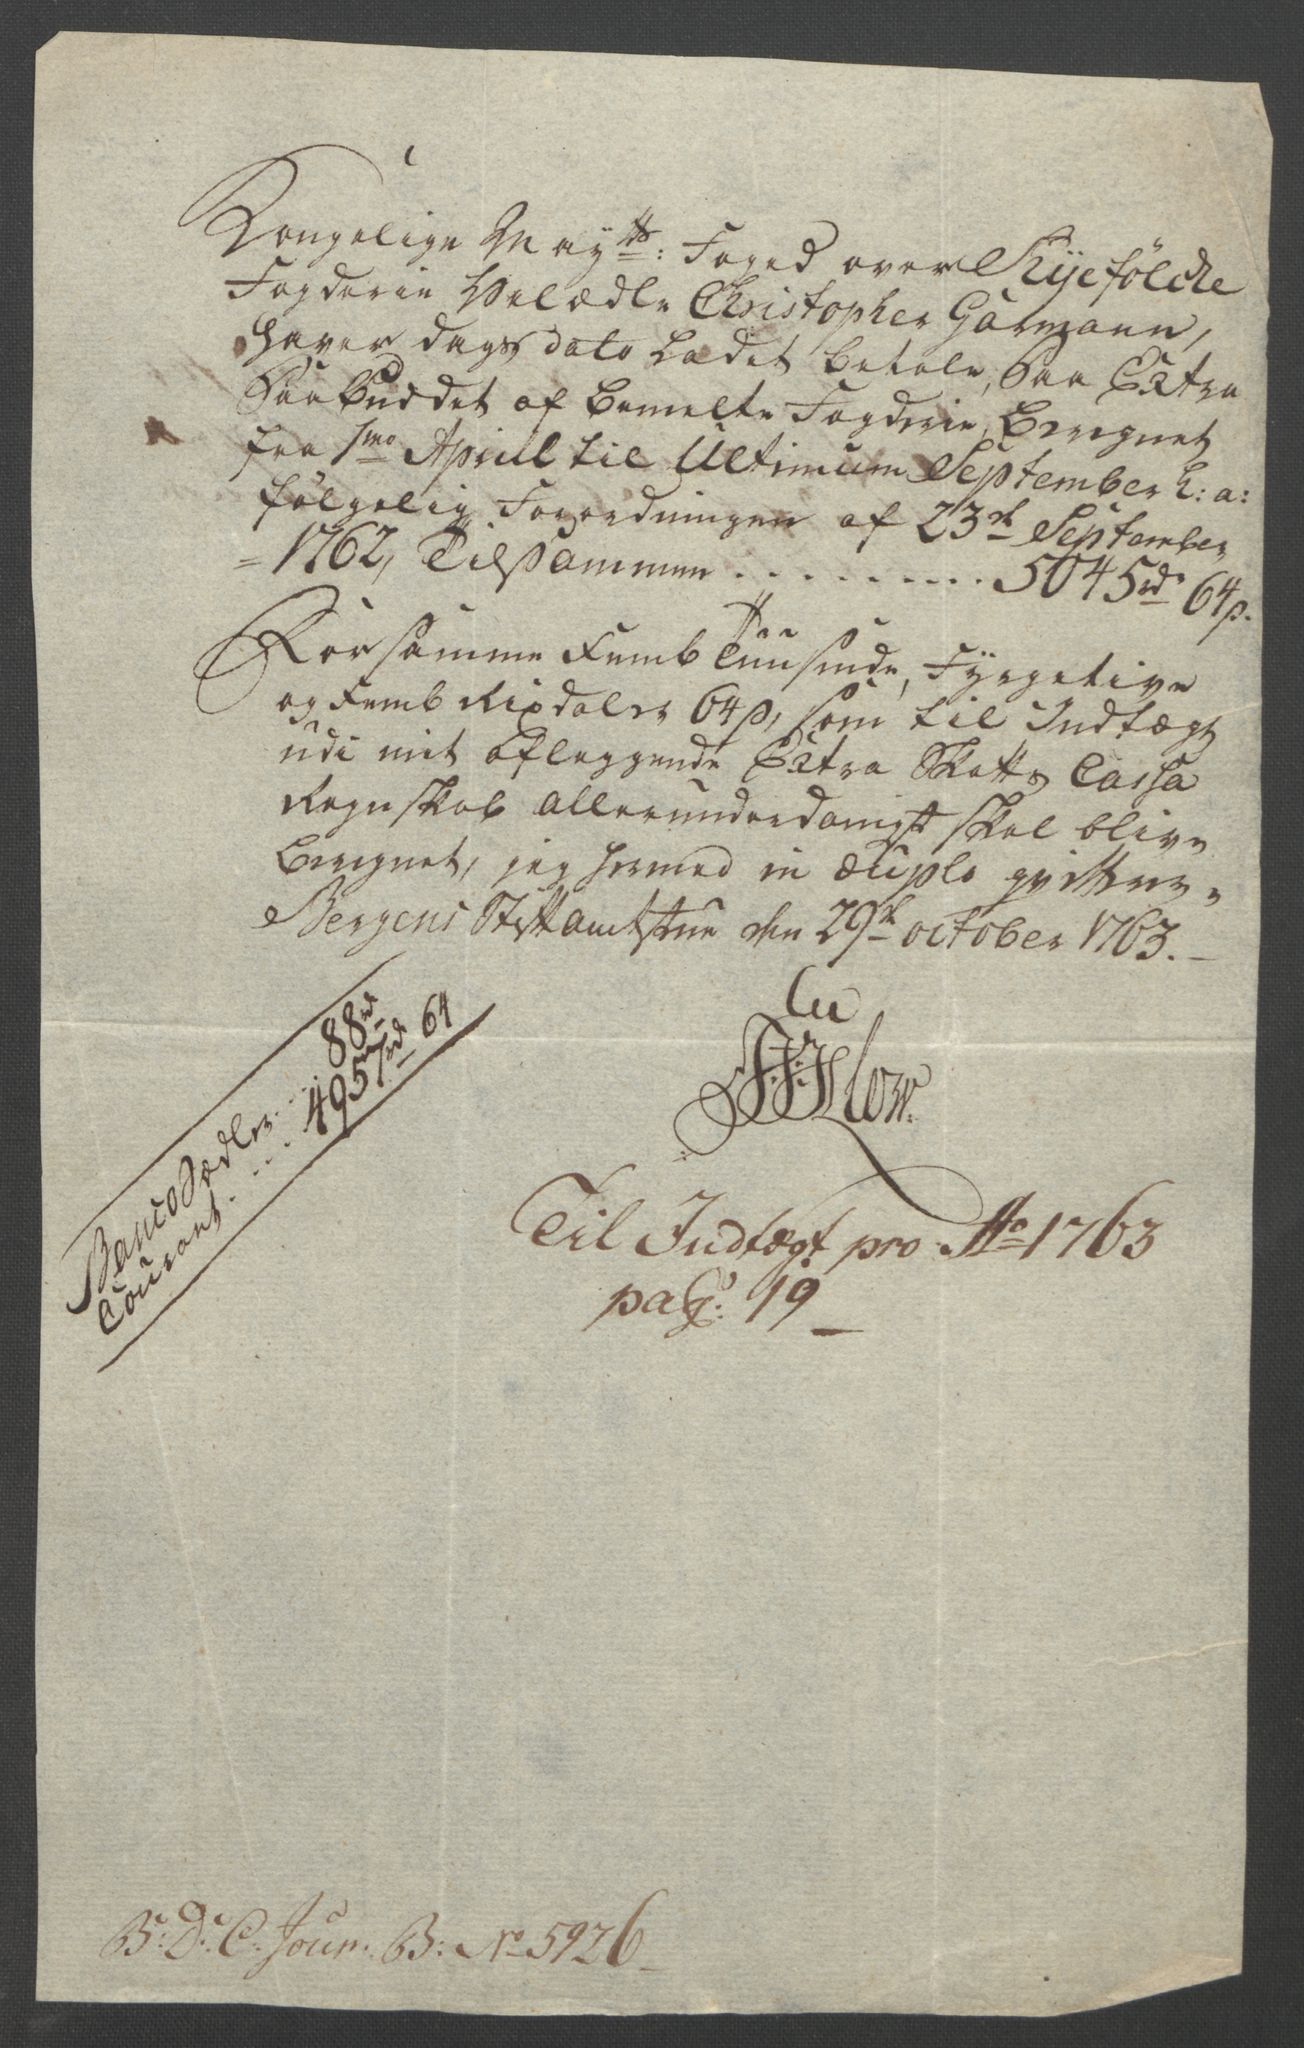 Kongelige Mayts: Foged over Ryefölche
Fogderie Velædle Christopher Garmann,
haver dags dato Ladet betale, Paa Extra
Paabuddet af bemelte Fogderie, Beregnet
fra 1mo Aprill til Ultimum September h: a:
følgelig Forordningen af 23de September
= 1762, Tilsammen . . . . . . . . . . 5045rd 64s.
For samme Femb Tuusinde, Fyrgetive
og Femb Rixdaler 64s, som til Indtægt
udi mit aflæggende Extra Skatts Cassa
Regnskab allerunderdanigst skal blive
Beregnet, jeg hermed in duplo qvitterer,
Bergens Stiftamtstue den 29de october 1763. –
Klow.
Banco Sedler . . . 88rd
Courant . . . . 4957rd 64
Til Indtægt pro Ao 1763
pag: 19
B: D: C. Jour. B: No 5926